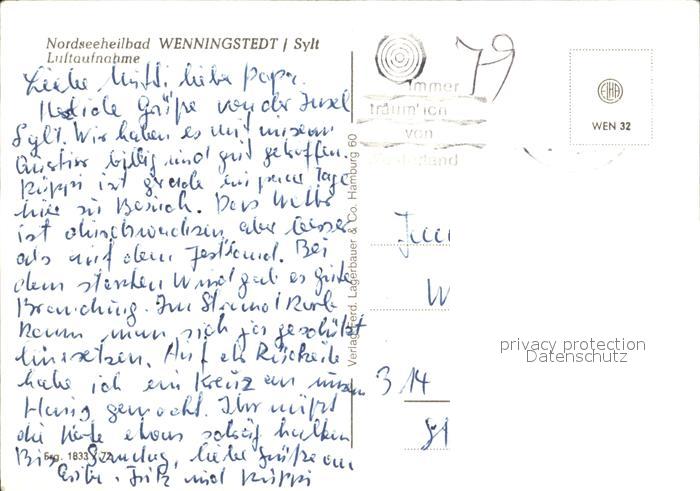 Nordseeheilbad WENNINGSTEDT / Sylt
Luftaufnahme
Liebe Mutti, lieber Papa.
Herzliche Grüße von der Insel
Sylt. Wir haben es mit unserm
Quartier billig und gut getroffen.
Püppi ist gerade ein paar Tage
hier zu Besuch. Das Wetter
ist durchwachsen, aber besser
als auf dem Festland. Bei
dem starken Wind gab es gute
Brandung. Im Strandkorb
kann man sich ja geschützt
hinsetzen. Auf der Rückseite
habe ich ein Kreuz an unserm
Haus gemacht. Ihr müßt
die Karte etwas schräg halten
Bis Sonntag, liebe Grüße von
Fritz und Püppi
Erg. 1833
Verlag Ferd. Lagerbauer & Co. Hamburg 60
79
immer
träum' ich
von
EIHA
WEN 32
W
privacy protection
Datenschutz
3 14